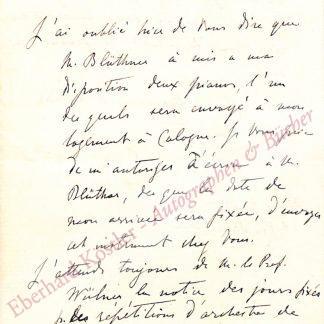 J'ai oublié hier de Vous dire que
M. Blüthner a mis a ma
disposition deux pianos, l'un
des quels sera envoyé à mon
logement à Cologne. Je Vous prie
de m'autoriser d'écrire à M.
Blüthner, dès que la date de
mon arrivée sera fixée, d'envoyer
cet instrument chez Vous.
J'attends toujours de M. le Prof.
Wüllner la notice des jours fixés
p. les répétitions d'orchestre de
Eberhard Köstler - Autographen & Bücher